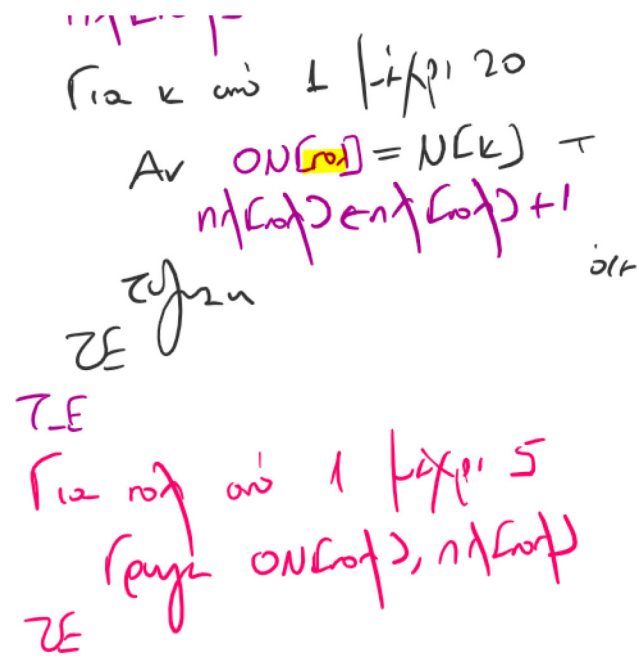 Για κ από 1 μέχρι 20
Αν ON[πολ] = N[κ] τ
πλ[πολ] ← πλ[πολ] + 1
τέλος_αν
ΤΕ
Τ_Ε
Για πολ από 1 μέχρι 5
Γραψε ON[πολ], πλ[πολ]
ΤΕ